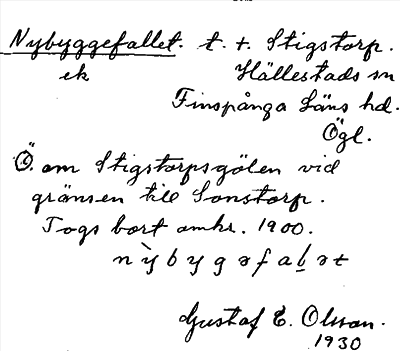 Nybyggefallet. t. t. Stigstorp.
ek Hällestads sn
Finspånga läns hd.
Ögl.
Ö. om Stigstorpsgölen vid
gränsen till Sonstorp.
Togs bort omkr. 1900.
n y̌ b y g ə f a ḻ ə t
Gustaf E. Olsson.
1930